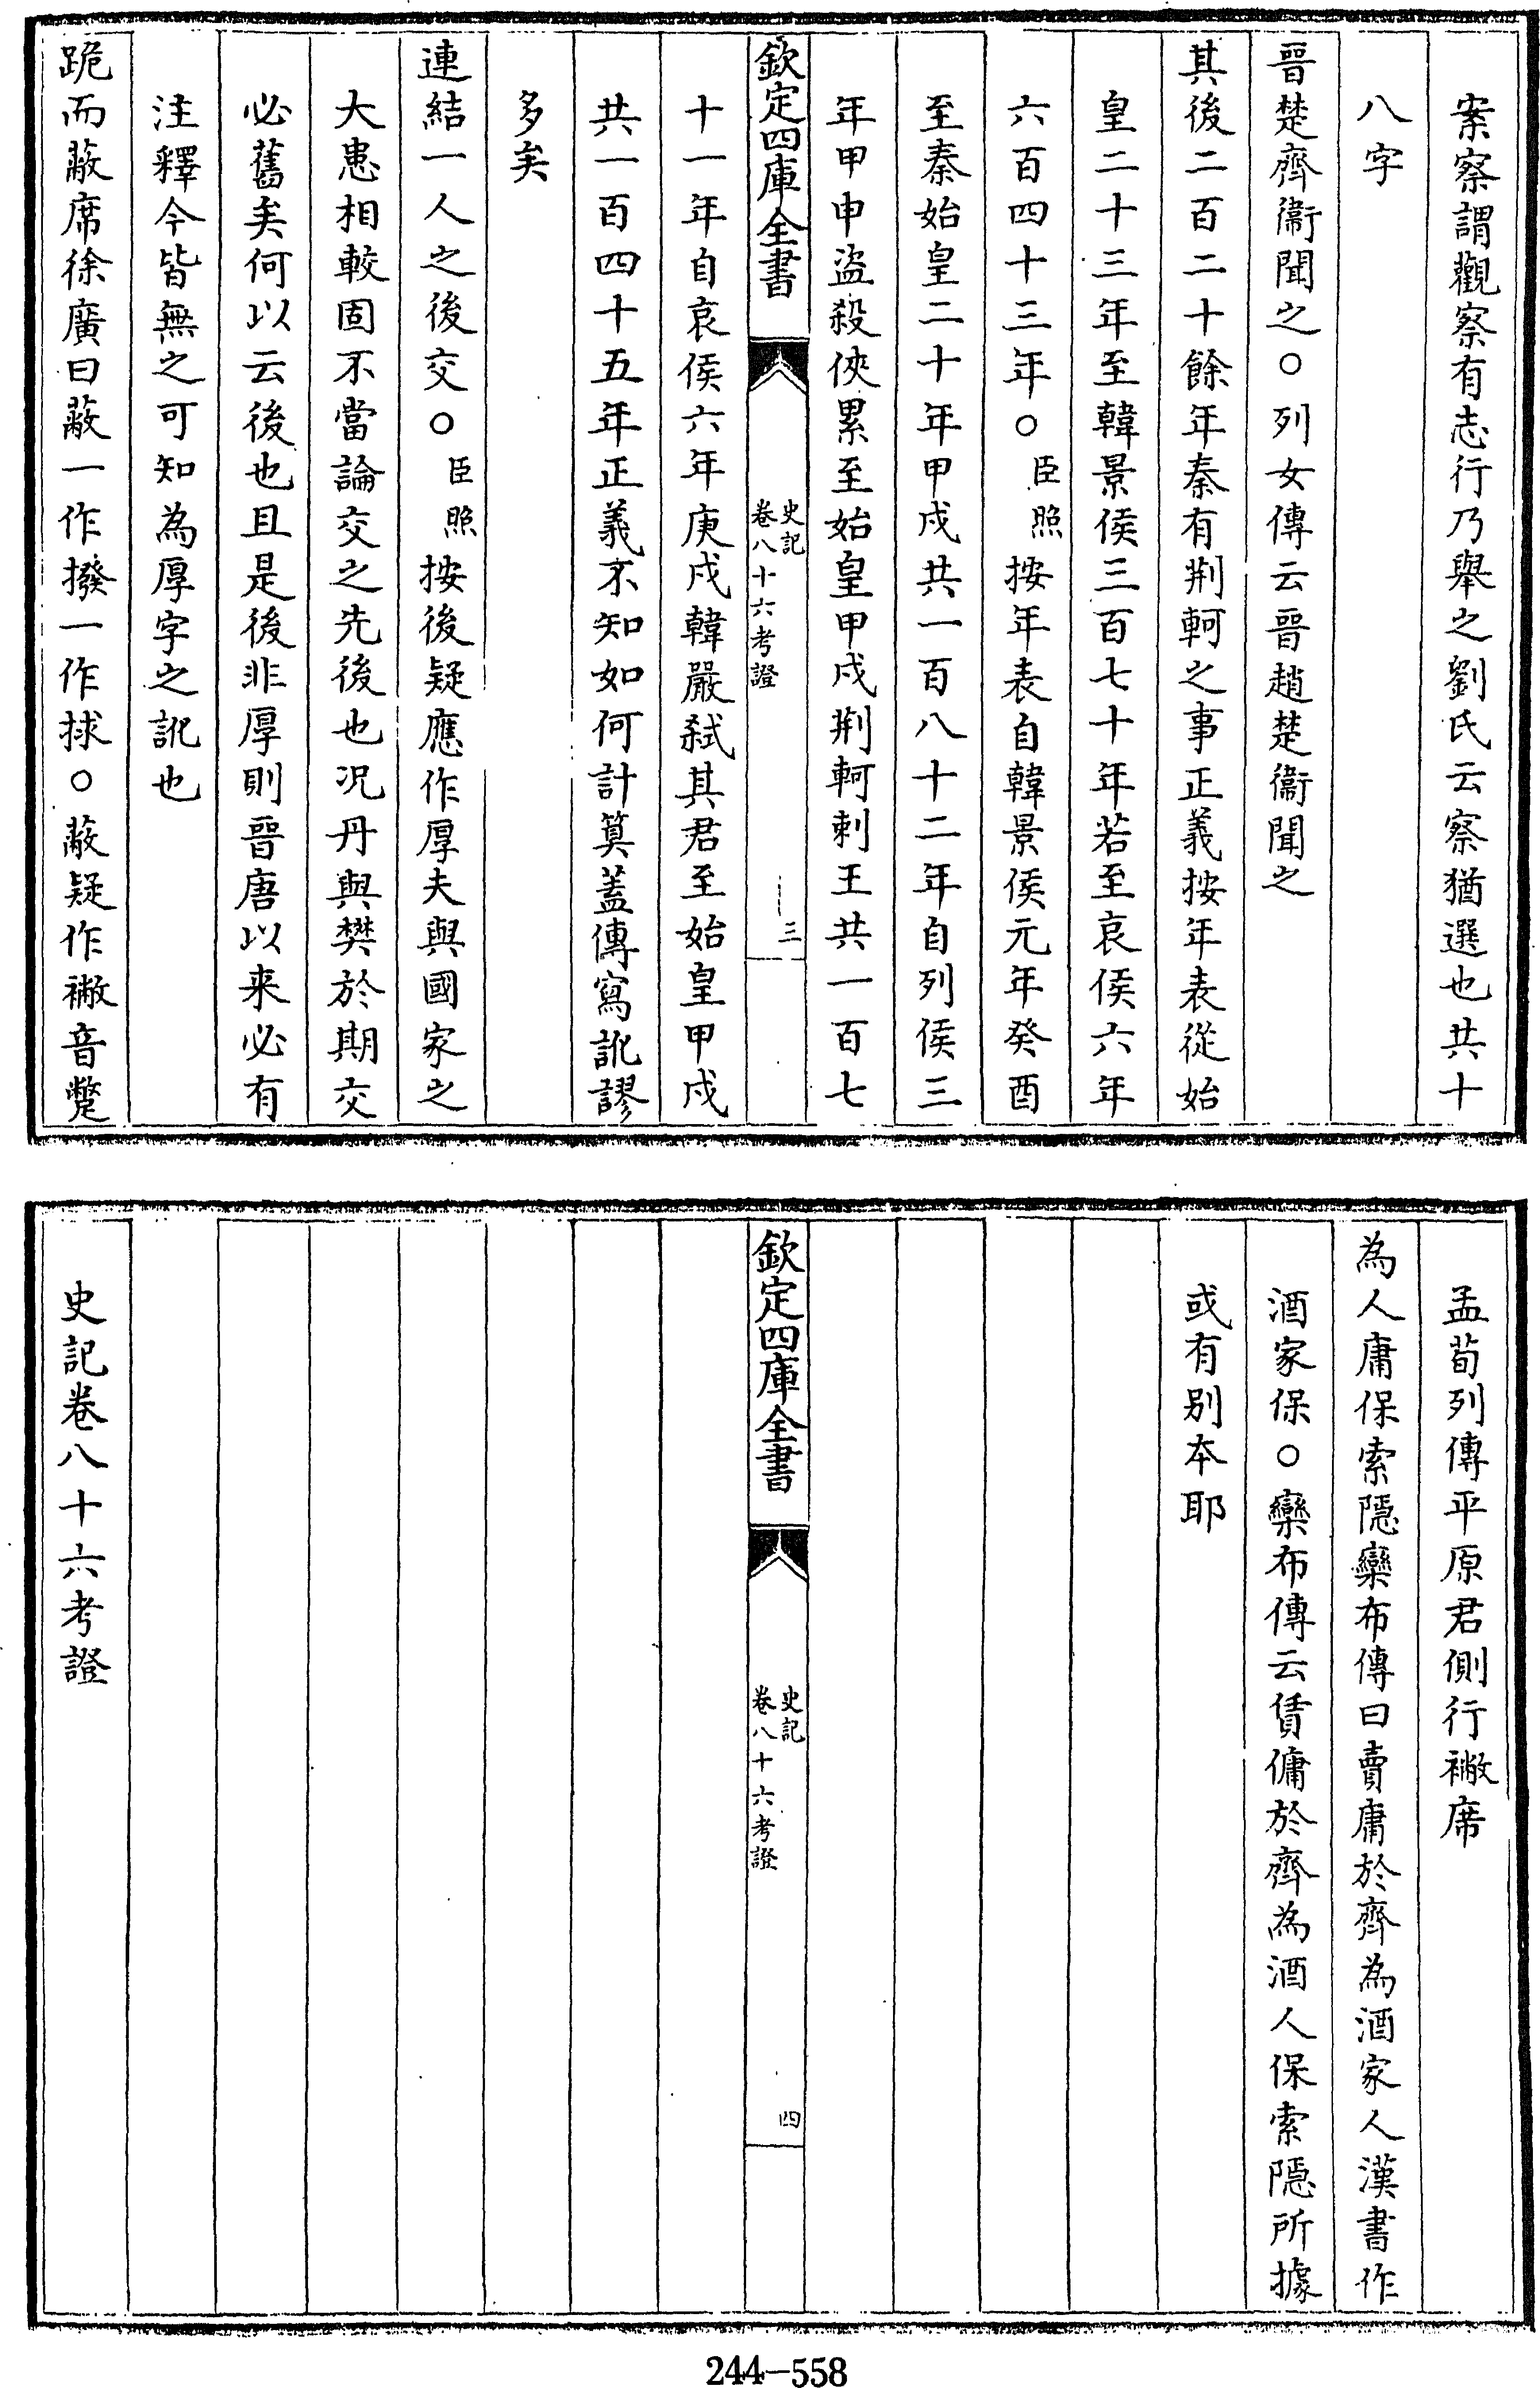 案察謂觀察有志行乃舉之劉氏云察猶選也共十
八字
晉楚齊衞聞之○列女傳云晉趙楚衞聞之
其後二百二十餘年秦有荆軻之事正義按年表從始
皇二十三年至韓景侯三百七十年若至哀侯六年
六百四十三年○臣照按年表自韓景侯元年癸酉
至秦始皇二十年甲戌共一百八十二年自列侯三
年甲申盜殺俠累至始皇甲戌荆軻刺王共一百七
欽定四庫全書
史記
卷八十六考證
三
十一年自哀侯六年庚戌韓嚴弑其君至始皇甲戌
共一百四十五年正義不知如何計算蓋傳寫訛謬
多矣
連結一人之後交○臣照按後疑應作厚夫與國家之
大患相較固不當論交之先後也况丹與樊於期交
必舊矣何以云後也且是後非厚則晉唐以来必有
注釋今皆無之可知為厚字之訛也
跪而蔽席徐廣曰蔽一作撥一作拔○蔽疑作襒音蹩
孟荀列傳平原君側行襒席
為人庸保索隱欒布傳曰賣庸於齊為酒家人漢書作
酒家保○欒布傳云賃傭於齊為酒人保索隱所據
或有别本耶
欽定四庫全書
史記
卷八十六考證
四
史記卷八十六考證
244-558